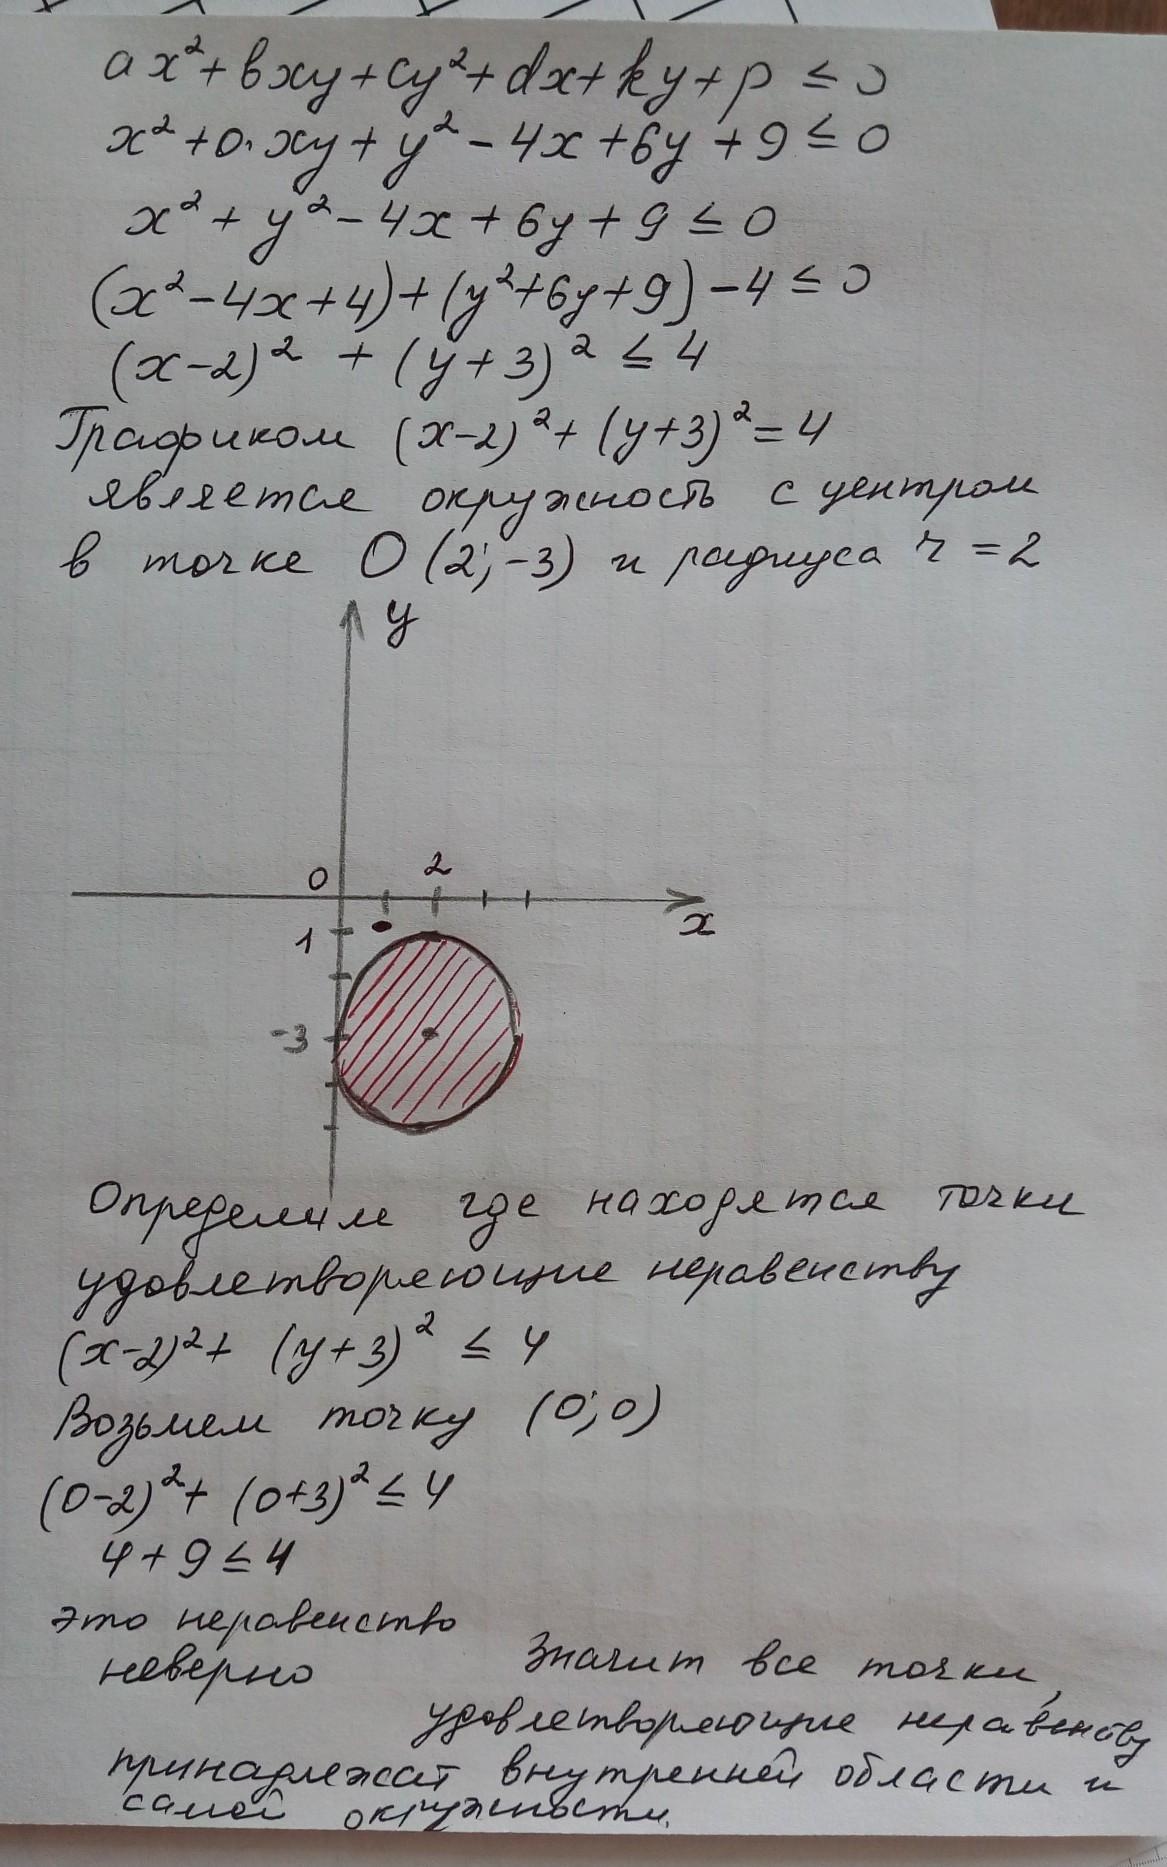 ax² + bxy + cy² + dx + ky + p ≤ 0
x² + 0·xy + y² - 4x + 6y + 9 ≤ 0
x² + y² - 4x + 6y + 9 ≤ 0
(x² - 4x + 4) + (y² + 6y + 9) - 4 ≤ 0
(x-2)² + (y+3)² ≤ 4
Графиком (x-2)² + (y+3)² = 4
является окружность с центром
в точке O (2; -3) и радиуса r = 2
y
0 2
x
1
-3
Определим где находятся точки
удовлетворяющие неравенству
(x-2)² + (y+3)² ≤ 4
Возьмем точку (0; 0)
(0-2)² + (0+3)² ≤ 4
4 + 9 ≤ 4
это неравенство
неверно
Значит все точки,
удовлетворяющие неравенству
принадлежат внутренней области и
самой окружности.